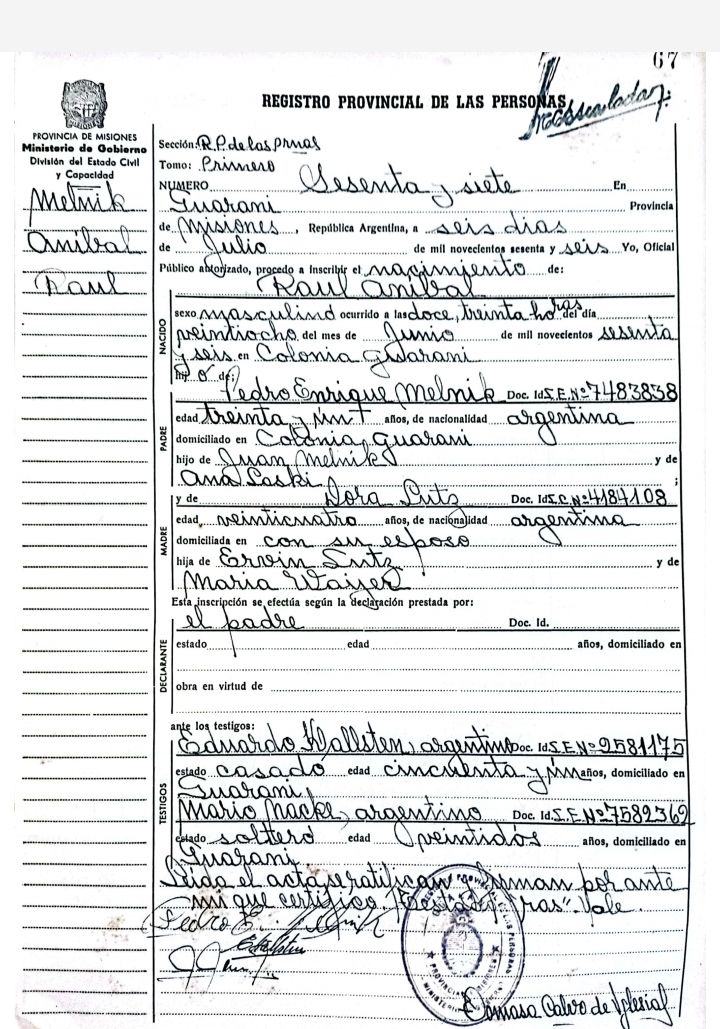 67
REGISTRO PROVINCIAL DE LAS PERSONAS
PROVINCIA DE MISIONES
Ministerio de Gobierno
División del Estado Civil
y Capacidad
Melnik
Anibal
Raul
Sección: R.P. de las Prnas
Tomo: Primero
NUMERO Sesenta y siete En
Guarani Provincia
de Misiones, República Argentina, a seis dias
de Julio de mil novecientos sesenta y seis Yo, Oficial
Público autorizado, procedo a inscribir el nacimiento de:
Raul Anibal
NACIDO
sexo masculino ocurrido a las doce, treinta horas del día
veintiocho del mes de Junio de mil novecientos sesenta
y seis en Colonia Guarani
hijo de:
PADRE
Pedro Enrique Melnik Doc. Id. I.E. Nº 7483838
edad treinta y un años, de nacionalidad argentina
domiciliado en Colonia Guarani
hijo de Juan Melnik y de
Ana Laski ;
MADRE
y de Dora Lutz Doc. Id. L.C. Nº 4184108
edad, veinticuatro años, de nacionalidad argentina
domiciliada en con su esposo
hija de Ervin Lutz y de
Maria Waijer
Esta inscripción se efectúa según la declaración prestada por:
DECLARANTE
el padre Doc. Id.
estado edad años, domiciliado en
obra en virtud de
ante los testigos:
TESTIGOS
Eduardo Hallsten, argentino Doc. Id. I.E. Nº 2581175
estado casado edad cincuenta y un años, domiciliado en
Guarani
Mario Nacke, argentino Doc. Id. I.E. Nº 7582362
estado soltero edad veintidós años, domiciliado en
Guarani
Leida el acta, se ratifican firman por ante
mi que certifico. Testado: "ras". Vale
Pedro E. Melnik
EHallsten
Tomasa Calvo de Yglesias